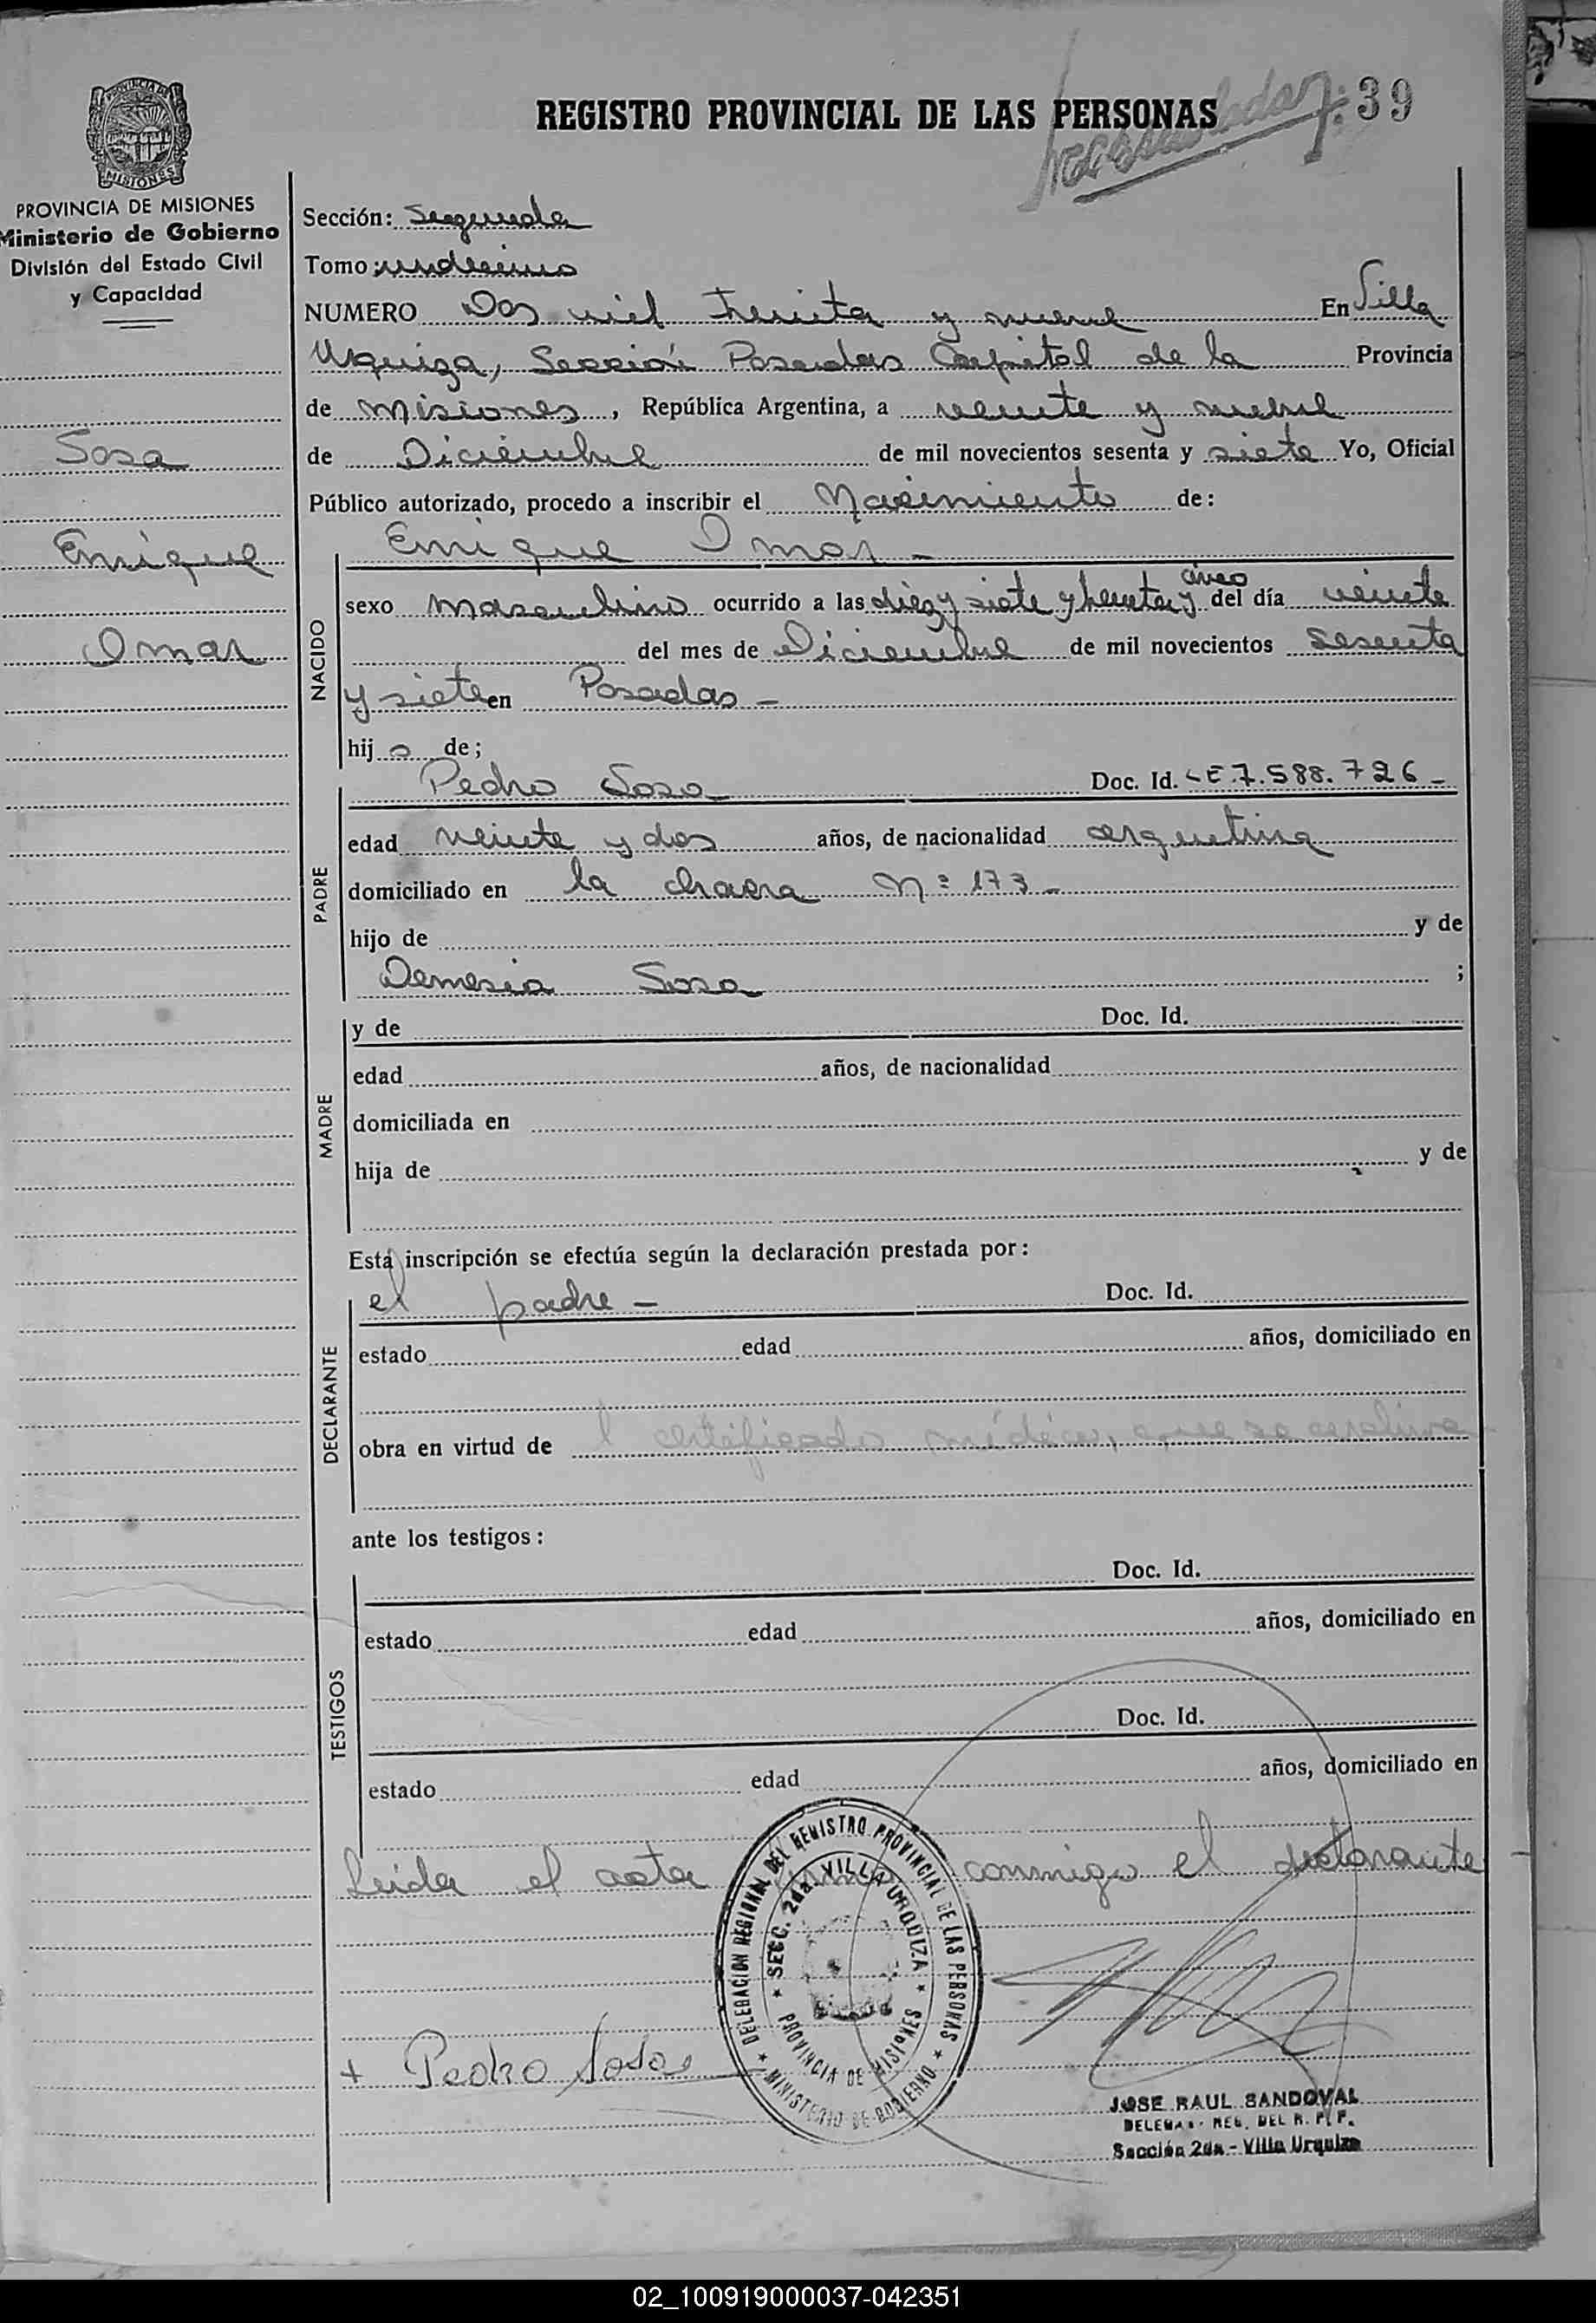 REGISTRO PROVINCIAL DE LAS PERSONAS
39
PROVINCIA DE MISIONES
PROVINCIA DE MISIONES
Ministerio de Gobierno
División del Estado Civil
y Capacidad
Sosa
Enrique
Omar
Sección: Segunda
Tomo: undecimo
NUMERO Dos mil treinta y nueve En Villa
Urquiza, Sección Posadas Capital de la Provincia
de Misiones, República Argentina, a veinte y nueve
de Diciembre de mil novecientos sesenta y siete Yo, Oficial
Público autorizado, procedo a inscribir el Nacimiento de:
Enrique Omar -
NACIDO
sexo masculino ocurrido a las diez y siete y treinta y cinco del día veinte
del mes de Diciembre de mil novecientos sesenta
y siete en Posadas -
hijo de;
PADRE
Pedro Sosa Doc. Id. LE 7.588.726 -
edad veinte y dos años, de nacionalidad argentina
domiciliado en la chacra Nº 173 -
hijo de y de
Demesia Sosa ;
MADRE
y de Doc. Id.
edad años, de nacionalidad
domiciliada en
hija de y de
Esta inscripción se efectúa según la declaración prestada por:
DECLARANTE
el padre - Doc. Id.
estado edad años, domiciliado en
obra en virtud de l certificado médico, que se archiva
ante los testigos:
TESTIGOS
Doc. Id.
estado edad años, domiciliado en
Doc. Id.
estado edad años, domiciliado en
Leida el acta conmigo el declarante -
DELEGACION REGIONAL DEL REGISTRO PROVINCIAL DE LAS PERSONAS
★ MINISTERIO DE GOBIERNO ★
★ SECC. 2da. VILLA URQUIZA ★
PROVINCIA DE MISIONES
+ Pedro Sosa
JOSE RAUL SANDOVAL
DELEGAD. REG. DEL R. P. P.
Sección 2da - Villa Urquiza
02_100919000037-042351